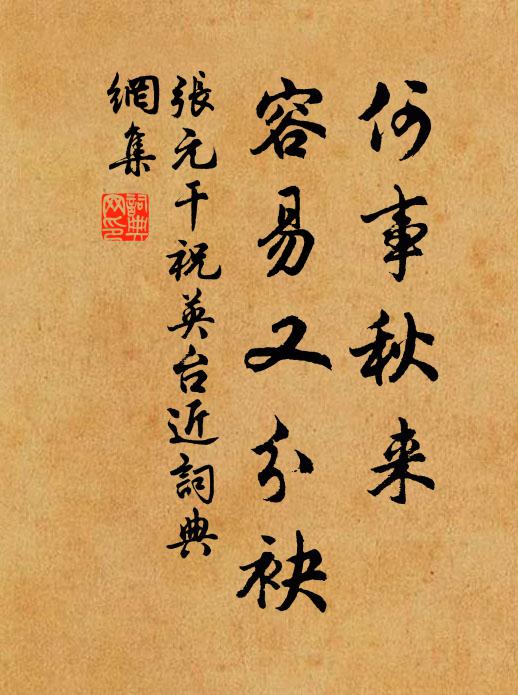 何事秋来
容易又分袂
張元干祝英台近詞典
網集
詞典
网印